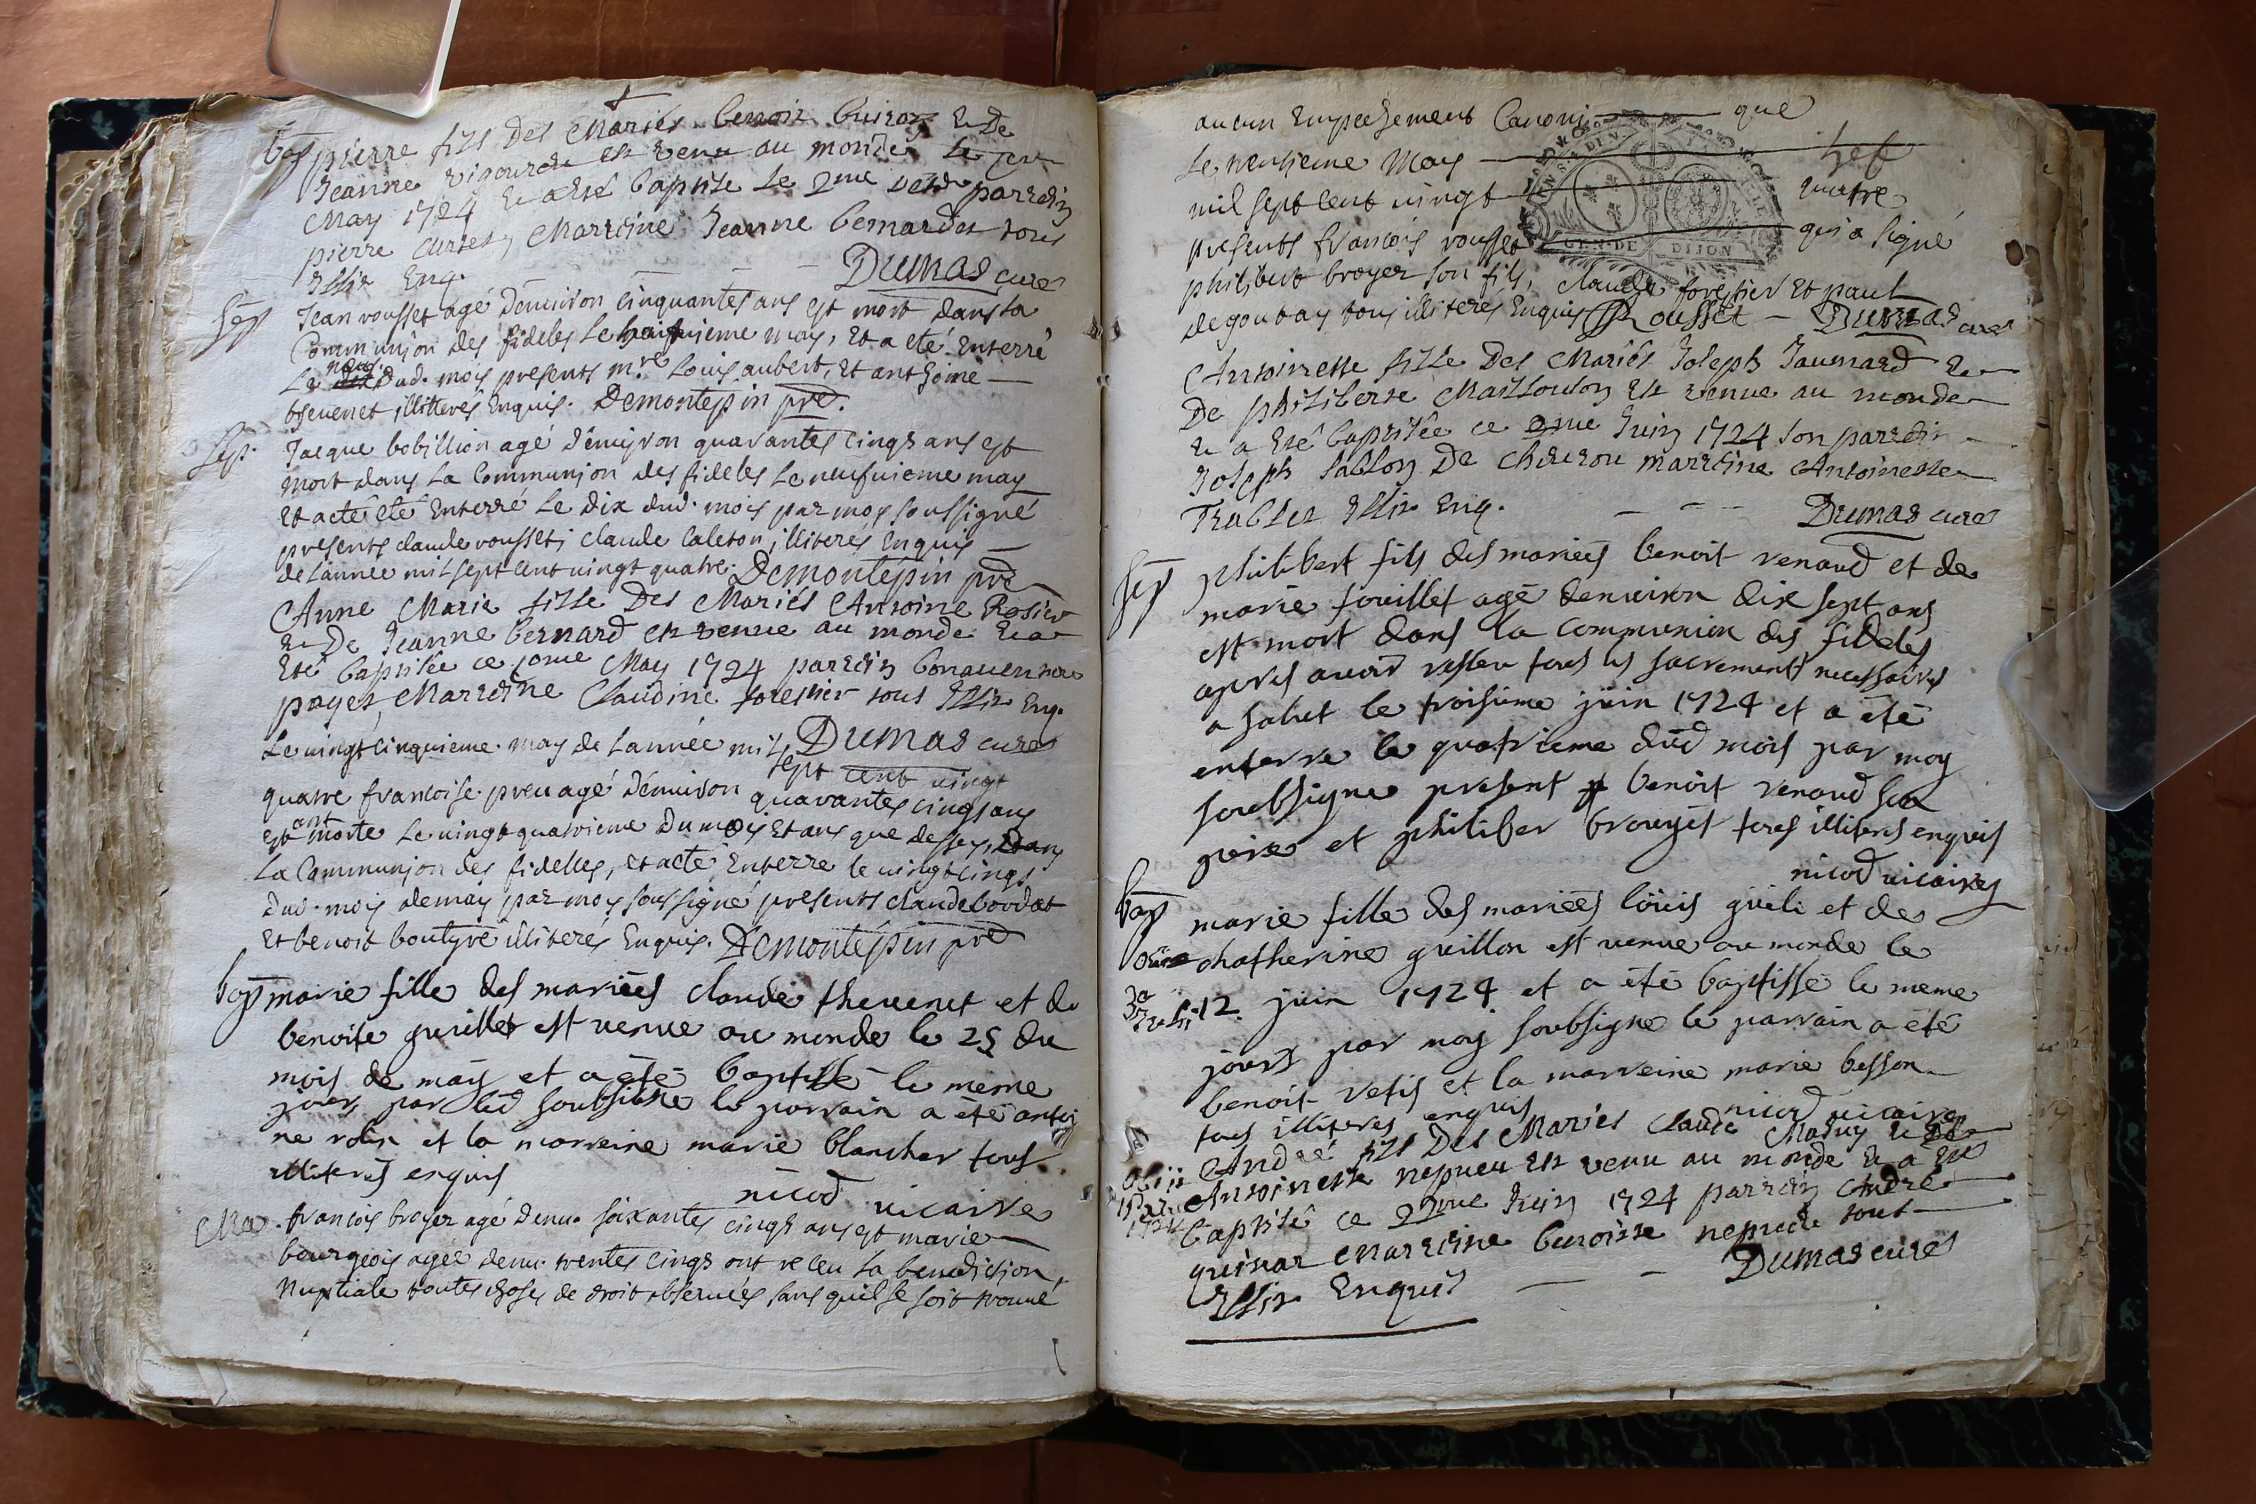 bap pierre fils Des Mariés benoit buiron & De
Jeanne vigourde est venu au monde Le jer
May 1724 & a esté baptise Le 2me parrein
pierre Curtet, Marreine Jeanne bernardet tous
Illit Enq. Dumas curé
Sep Jean rousset agé denuiron cinquantes ans est mort dans la
Communion des fideles le huitieme may, Et a eté Enterré
Le neuf dud. mois presents mre Louis aubert, Et anthoine
theuenet illiterés Enquis. Demontepin pre.
Sep. Jacque bobillion agé denuiron quarantes cinqz ans est
mort dans la Communion des fideles le neufuieme may
Et acté eté Enterré Le Dix dud. mois par moy soussigné
presents claude rousset, claude Caleton, illiterés Enquis
de lannée mil sept cent vingt quatre. Demontepin pre
Anne Marie fille Des Mariés Antoine Rosier
& De Jeanne bernard est venue au monde & a
Eté baptisée ce jome May 1724 parrein bonauenture
payet, Marreine Claudine forestier tous Illit Enq.
Le vingt cinquieme may de lannée mil Dumas curé
sept cent vingt
quatre francoise preu agé denuiron quarantes cinqs ans
est morte Le vingt quatrieme du mois Et ans que dessus, Dans
La Communion des fidelles, et acté Enterre le vingt cinqs
dud. mois de may par moy soussigné presents claude bordat
Et benoit boutyre illiterés Enquis. Demontépin pre
bap marie fille des mariées claude theuenet et de
benoite guillet est venue au monde le 25 du
mois de may et a été baptissé le meme
jour par led soubsigne le parrain a été antoi
ne rolin et la marreine marie blanchar tous
illiterés enquis
nicod vicaire
Ma. francois broyer agé denu. soixantes cinqs ans et marie
bourgeois agée denu. trentes cinqs ont receu la benediction
Nuptiale toutes choses de droit obseruées sans quil se soit trouué
aucun Empechement Canoni que
Le neufieme May
mil sept cent vingt quatre
presents francois rousset qui a signé
philibert broyer son fils, claude forestier Et paul
degoutay tous illiteres Enquis Rousset - Dumas curé
Antoinette fille Des Mariés Joseph Jaunard &
De philiberte Maillouson est venue au monde
& a eté baptisée ce 2me Juin 1724 son parrein
Joseph Sablon De marreine Antoinette
Trablet Illit Enq. Dumas curé
Sep philibert fils des mariées benoit renaud et de
marie fouillet agé denuiron dix sept ans
est mort dans la communion des fideles
apres auoir resseu tous les sacrements necessaires
a salut le troisieme juin 1724 et a été
enterre le quatrieme dud mois par moy
soubsigne present benoit renaud son
pere et philiber brouyer tous illiteres enquis
nicod vicaire
bap marie fille des mariées löuis guili et de
chatherine guillon est venue au monde le
12 juin 1724 et a été baptissé le meme
jours par moy soubsigne le parrain a été
benoit vetis et la marreine marie besson
tous illiteres enquis nicod vicaire
obiit André fils Des Mariés Claude Mathy & De
Antoinette nepueu est venu au monde & a Eté
1724 baptisé ce 22me Juin 1724 parrein André
guinar Marreine benoitte nepueu tout
Illit Enquis Dumas curé
GEN DE DIJON